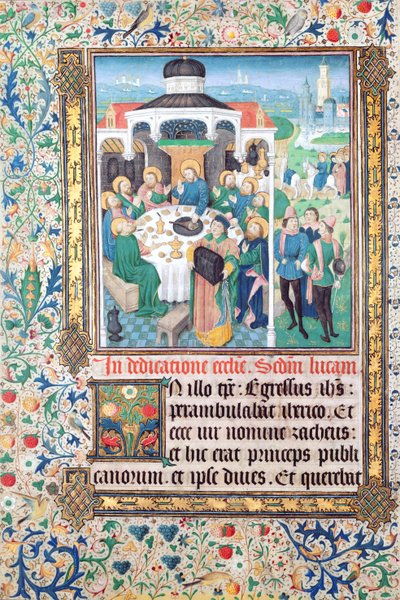 In dedicatione ecclie. Scdm lucam.
IN illo tpr: Egressus ihs:
perambulabat iherico. Et
ecce uir nomine zacheus:
et hic erat princeps publi
canorum. et ipse diues. Et querebat